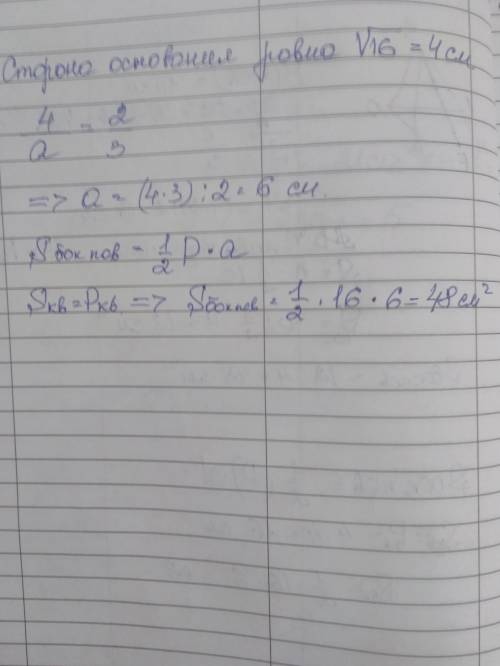 Сторона основания ровно √16 = 4 см
4/a = 2/3
=> a = (4·3) : 2 = 6 см.
Sбок пов = 1/2 P · a
Sкв = Pкв => Sбок пов = 1/2 · 16 · 6 = 48 см²